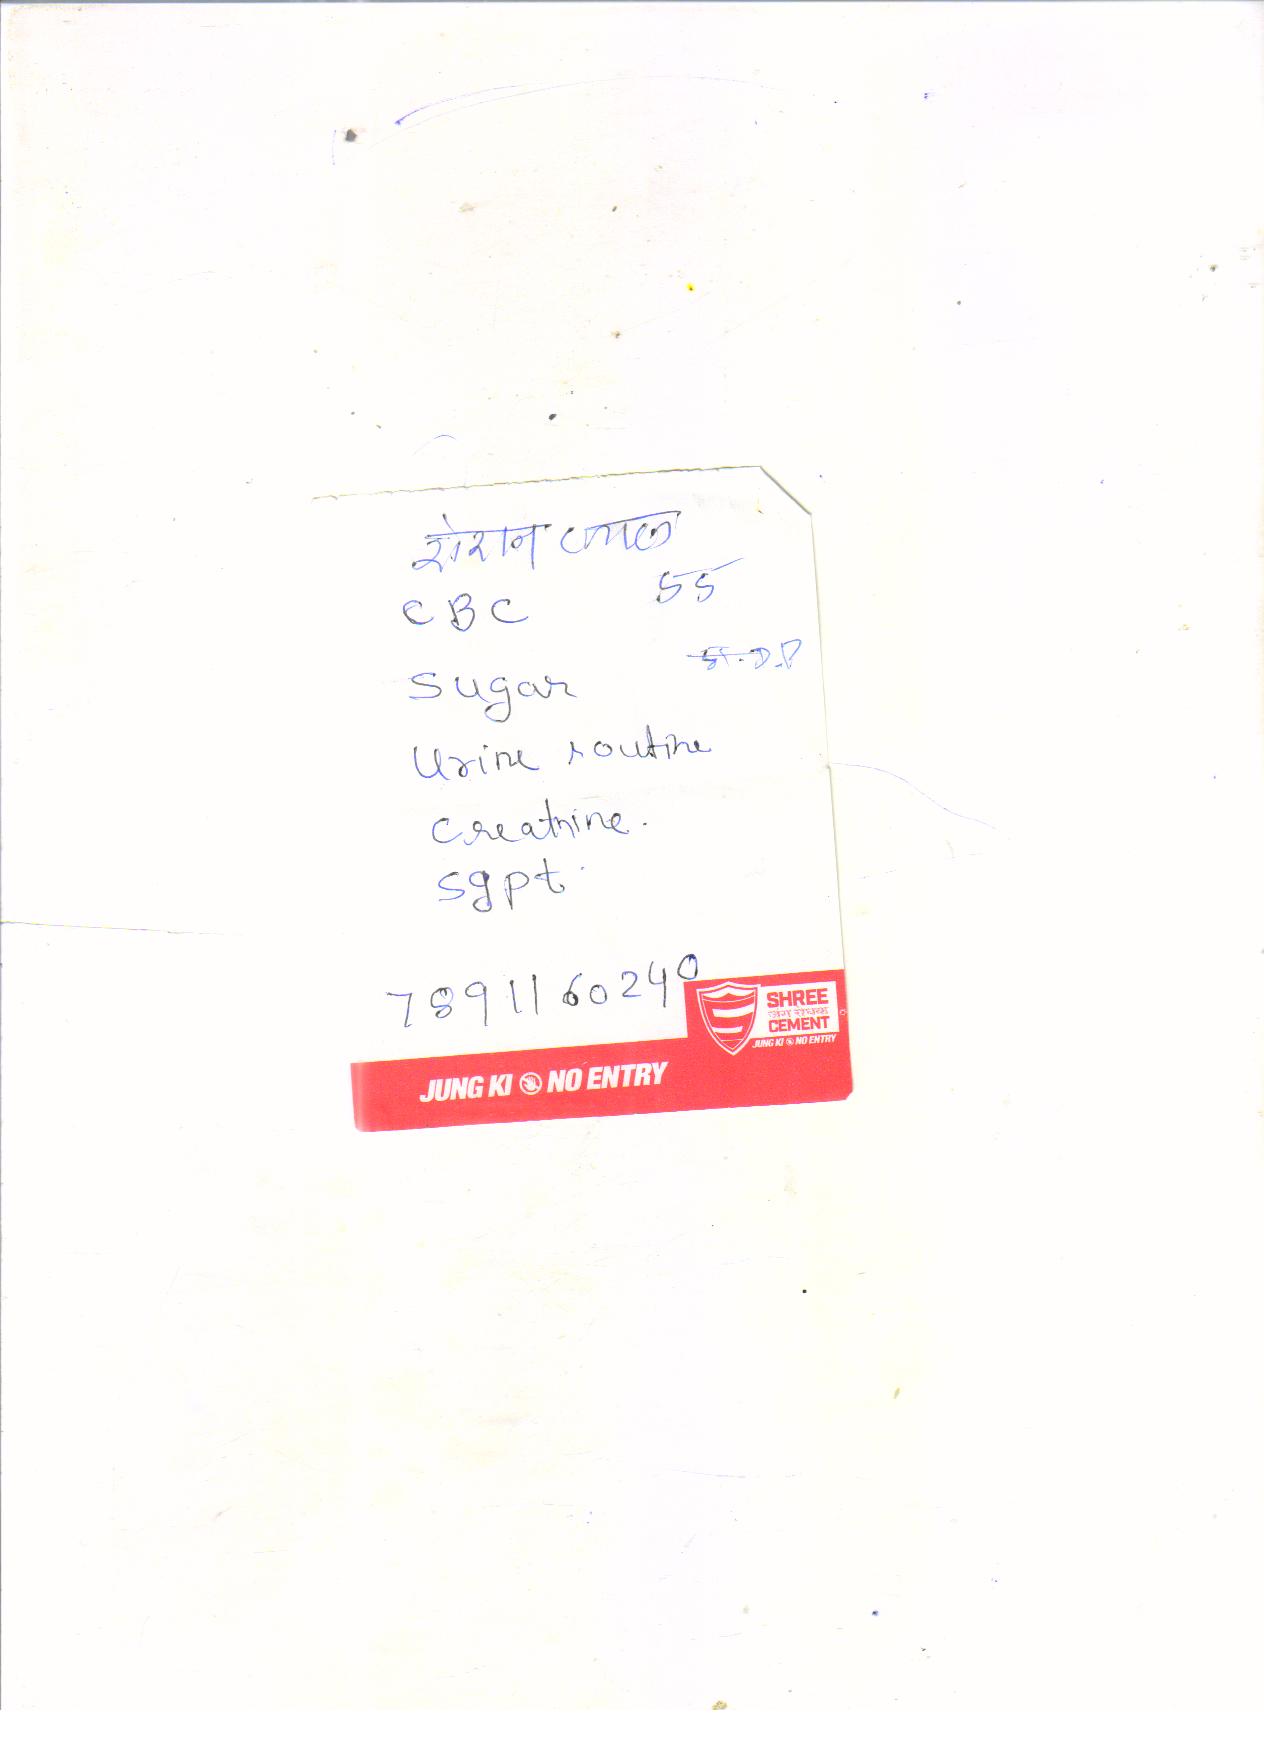 रोशन लाल
55
CBC
Sugar
Urine routine
Creatnine.
Sgpt
7891160240
SHREE
CEMENT
JUNG KI NO ENTRY
JUNG KI NO ENTRY